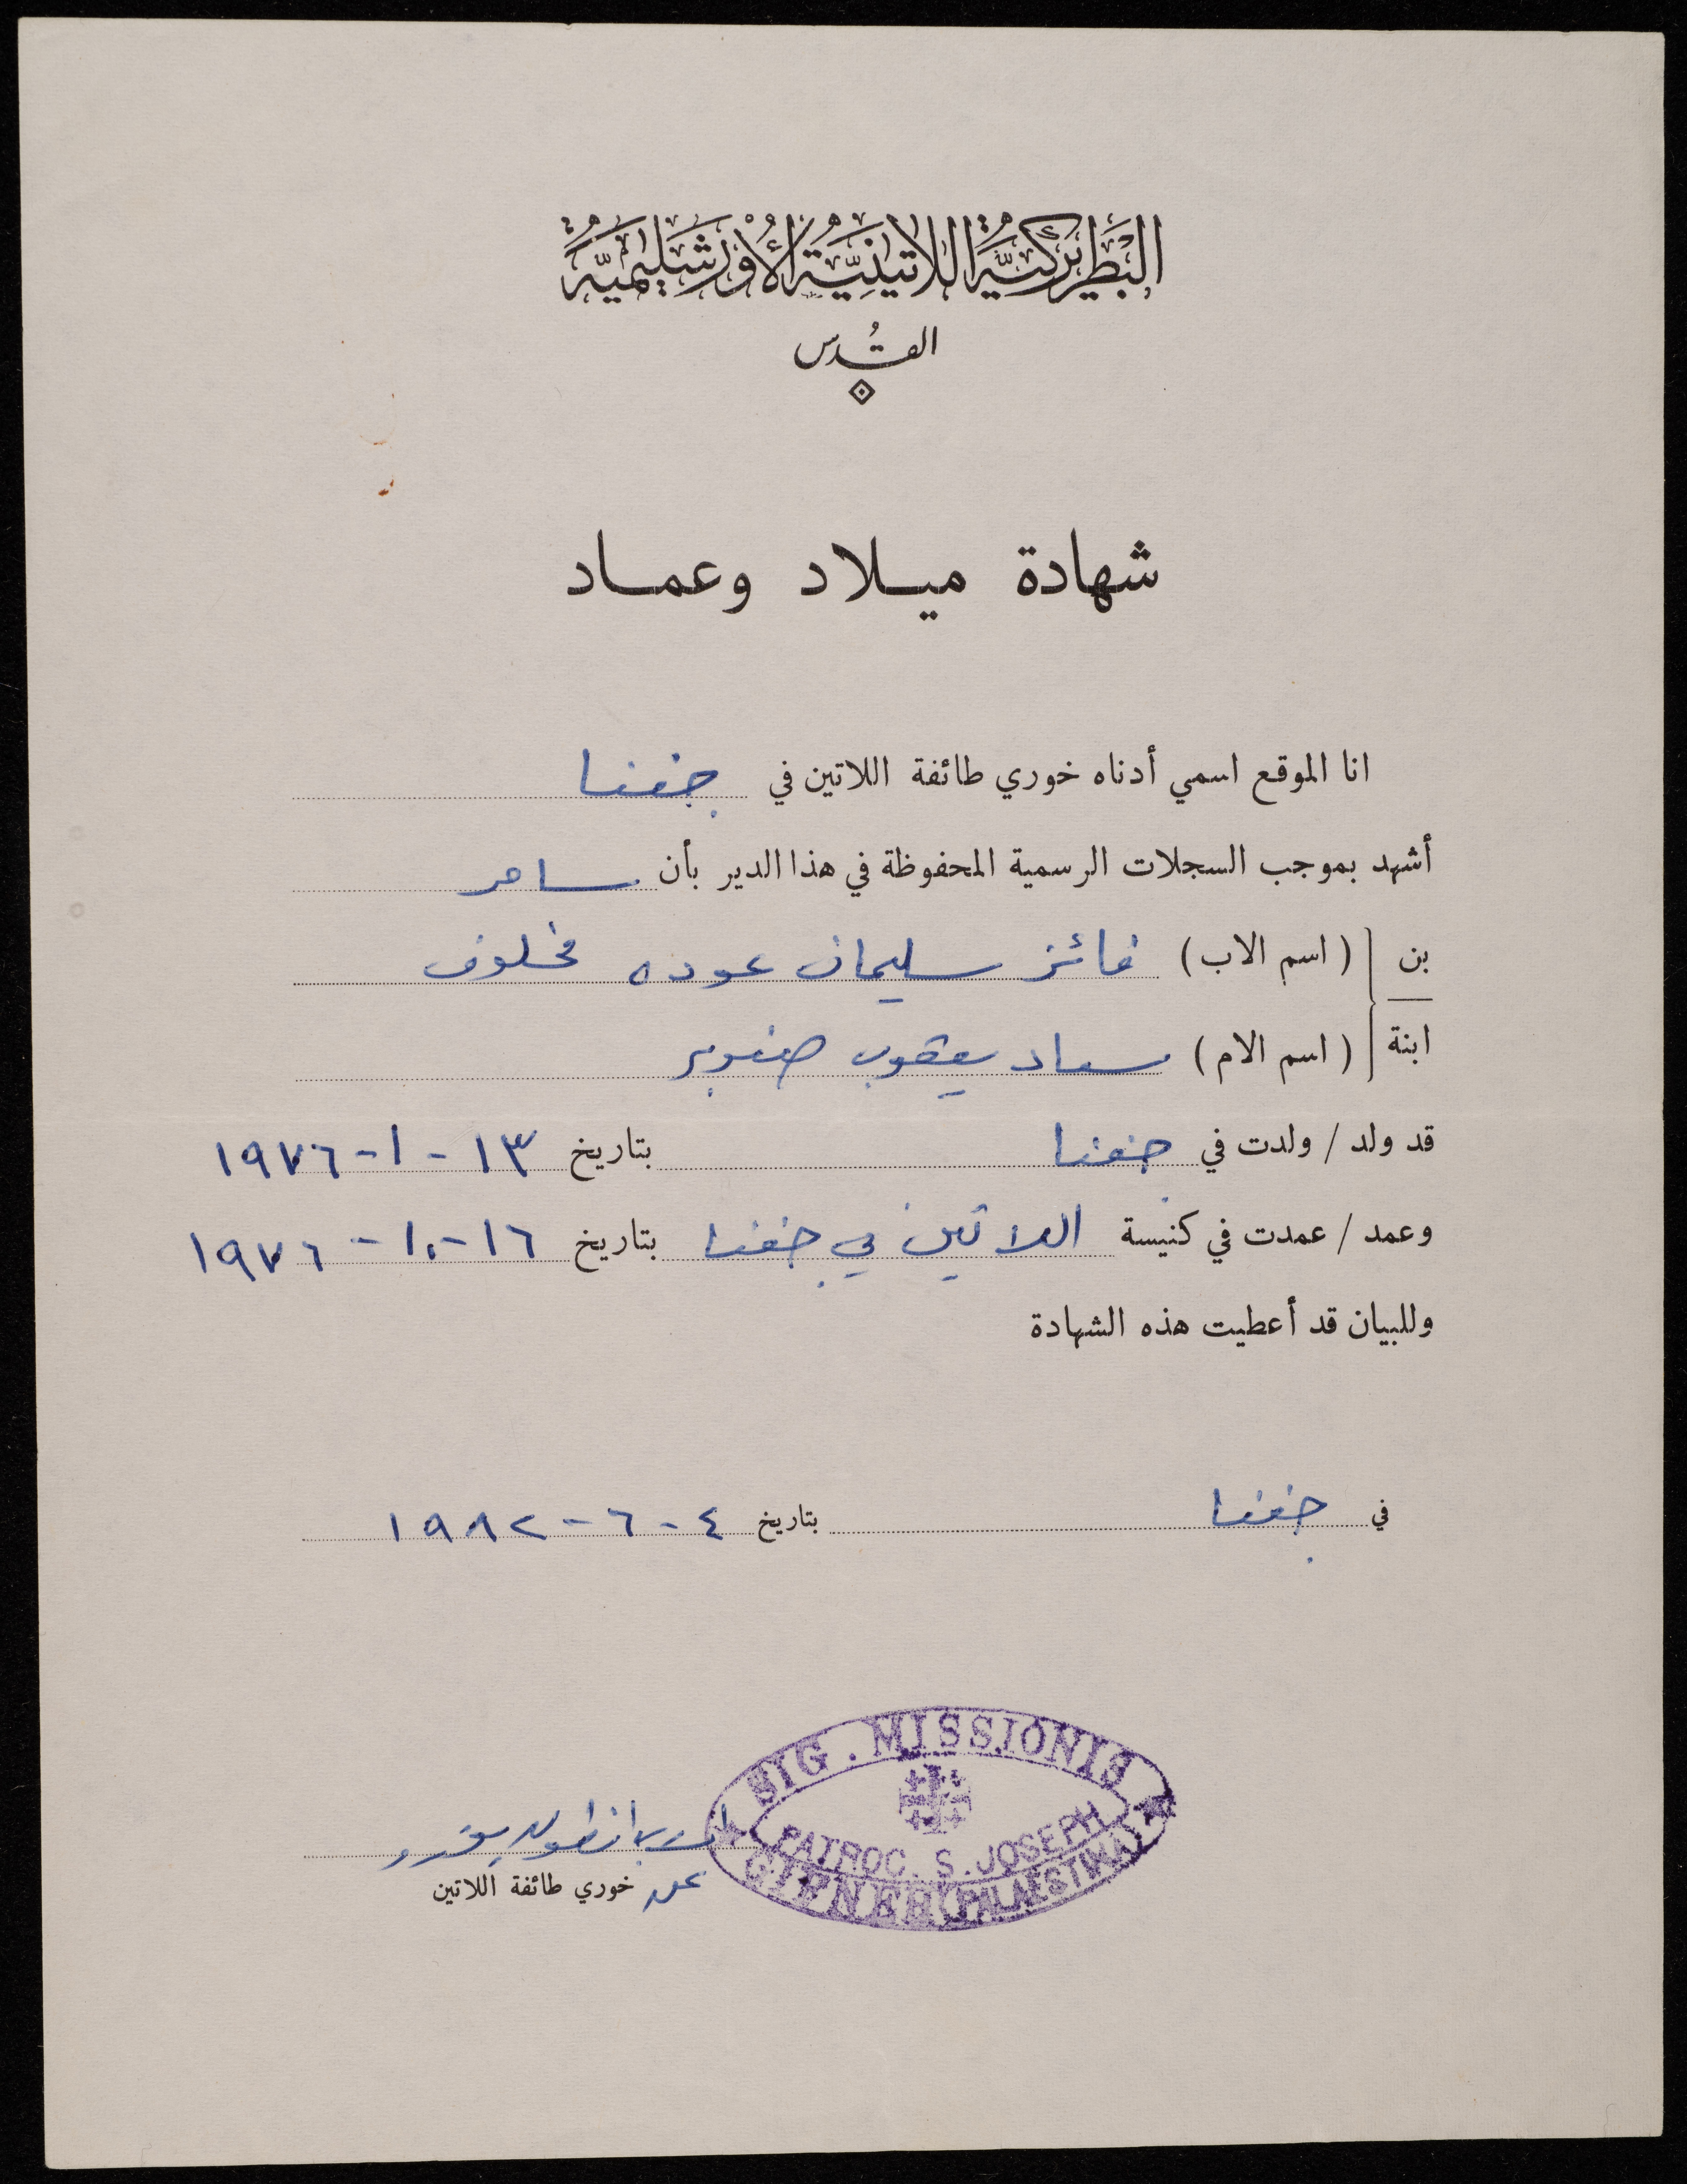 البَطْرِيَرْكِيَّةُ اللاتِينِيَّةُ الأُوْرَشَلِيمِيَّةُ
القُدس
شهادة ميلاد وعماد
انا الموقع اسمي أدناه خوري طائفة اللاتين في جفنا
أشهد بموجب السجلات الرسمية المحفوظة في هذا الدير بأن سامر
بن (اسم الاب) فائز سليمان عوده مخلوف
ابنة (اسم الام) سعاد يعقوب صنوبر
قد ولد / ولدت في جفنا بتاريخ ١٣-١-١٩٧٦
وعمد / عمدت في كنيسة اللاتين في جفنا بتاريخ ١٦-١٠-١٩٧٦
وللبيان قد أعطيت هذه الشهادة
في جفنا بتاريخ ٤-٦-١٩٨٢
SIG. MISSIONIS
PATROC. S. JOSEPH
GIFNEH (PALAESTINA)
خوري طائفة اللاتين